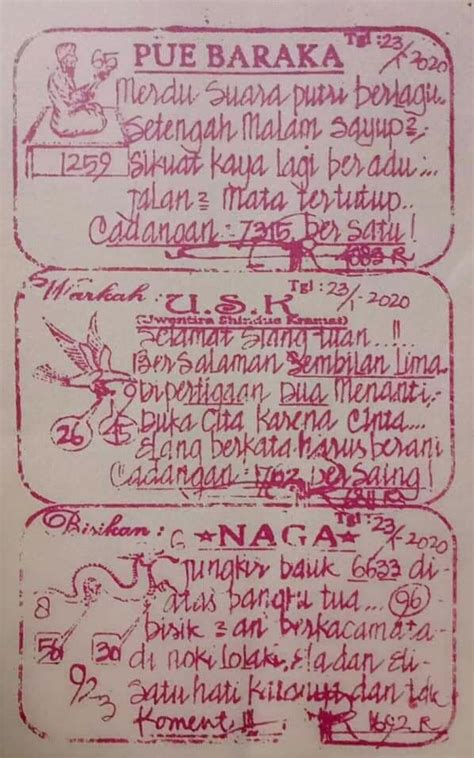 Tgl : 23/1-2020
PUE BARAKA
65
Merdu Suara putri berlagu..
Setengah Malam sayup²,
1259
Sikuat kaya lagi beradu...
Jalan² Mata tertutup..
Cadangan : 7315 bersatu!
R 4883 R
Warkah : U.S.K
Tgl : 23/1-2020
(Uwentira Shindue Kramat)
Selamat Siang tuan...!!
Bersalaman Sembilan Lima
Dipertigaan Dua Menanti,-
Duka Cita Karena Cinta....
26
Elang berkata harus berani
Cadangan : 1762 berSaing!
R
Bisikan : NAGA
Tgl : 23/1-2020
6
Jungkir bauk 6633 di-
8
atas bangku tua... 96
bisik²an berkacamata-
50 30
di noki lolaki, Eladan Eli-
923
Satu hati dan tak
Koment !!!
R 1692 R